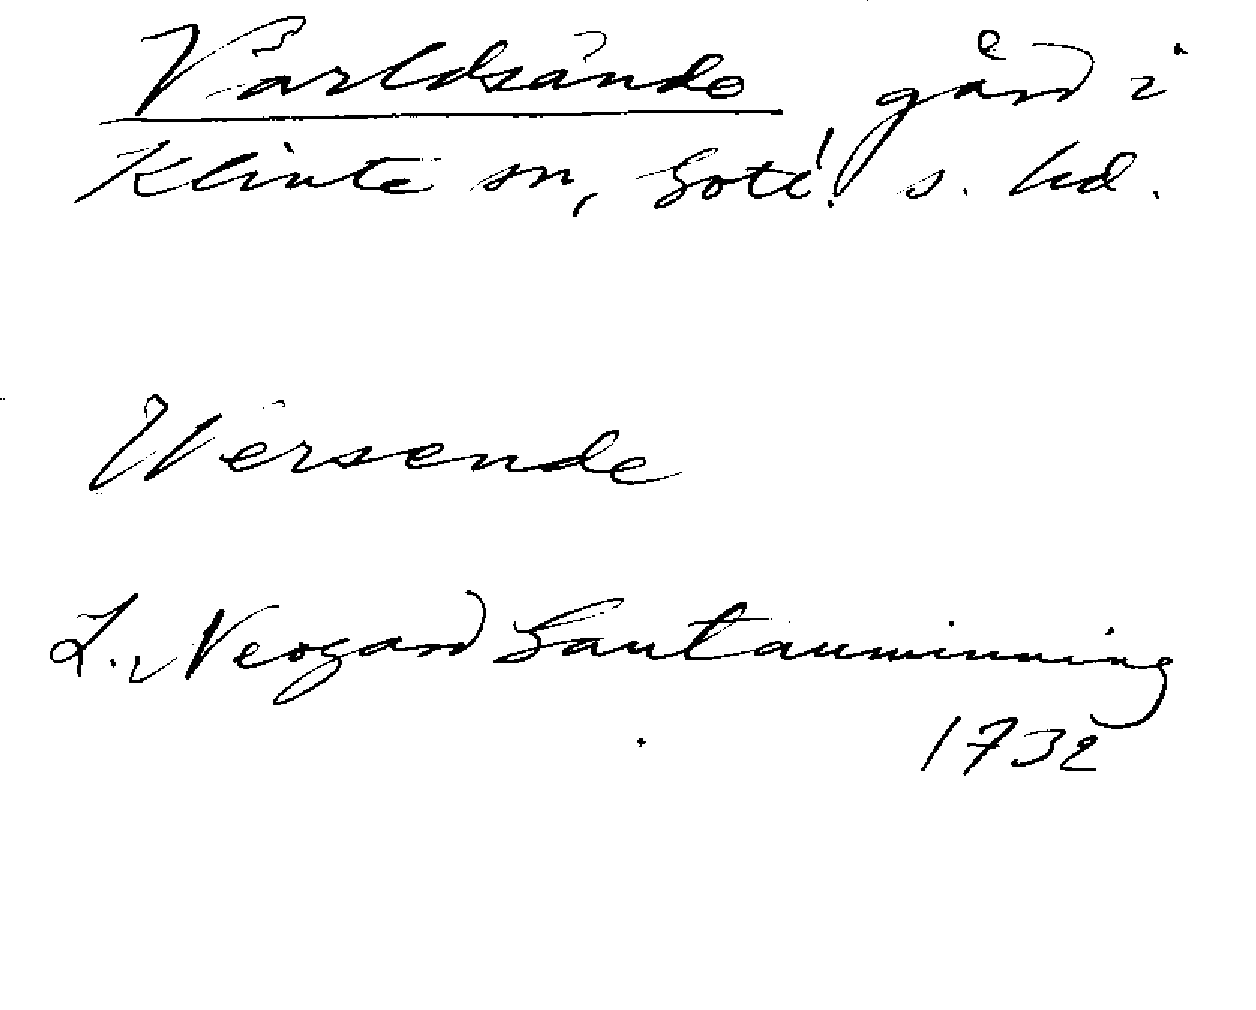 Världsände gård i
Klinte sn, Gotl. s. hd.
Wersende
L. Neogard Gautauminning
1732